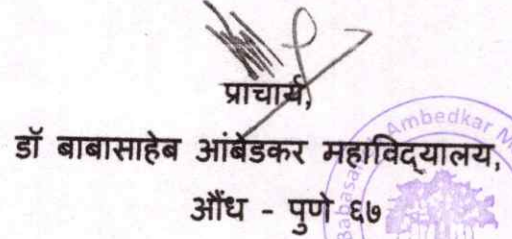 प्राचार्य,
डॉ बाबासाहेब आंबेडकर महाविद्यालय,
औंध - पुणे ६७
Babasa
Ambedkar M